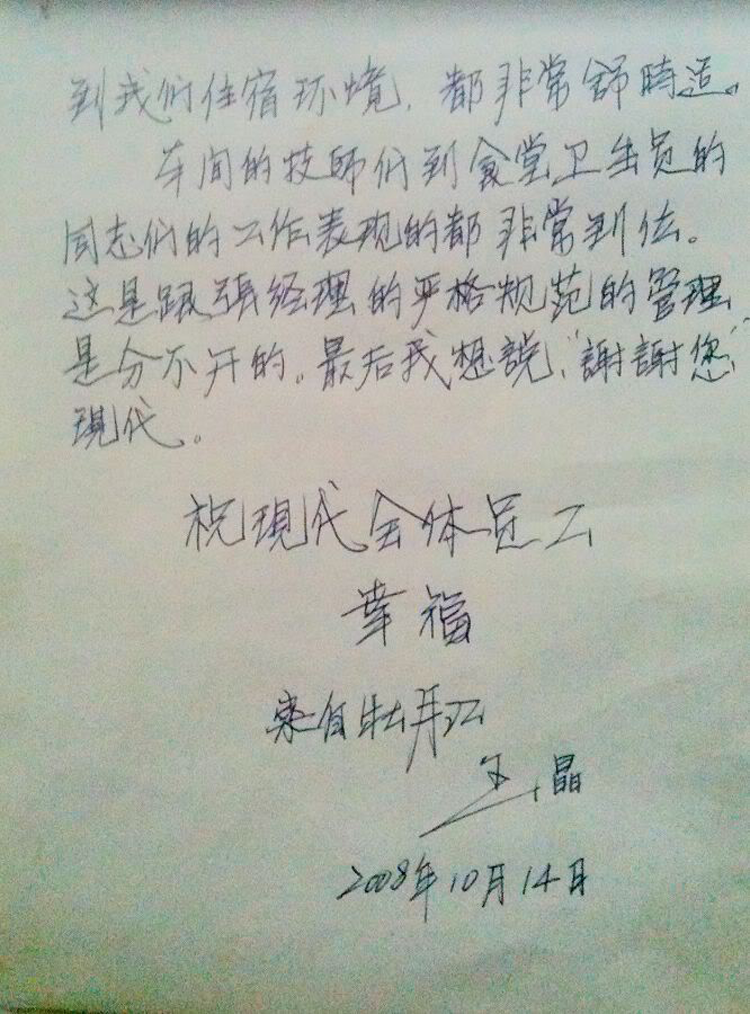 到我们住宿环境，都非常舒畅适。
车间的技师们到食堂卫生员的
同志们的工作表现的都非常到位。
这是跟張经理的严格规范的管理
是分不开的。最后我想說，“謝謝您”
現代。
祝現代全体员工
幸福
来自牡丹江
王晶
2008年10月14日